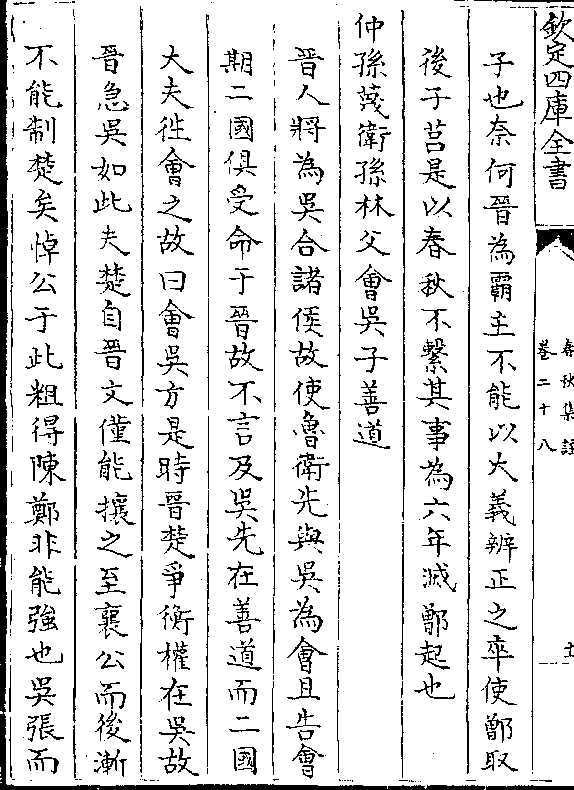 欽定四庫全書
春秋集註
卷二十八
十
子也奈何晉為霸主不能以大義辨正之卒使鄫取
後于莒是以春秋不繫其事為六年滅鄫起也
仲孫蔑衛孫林父會吳子善道
晉人將為吳合諸侯故使魯衛先與吳為會且告會
期二國俱受命于晉故不言及吳先在善道而二國
大夫徃會之故曰會吳方是時晉楚爭衡權在吳故
晉急吳如此夫楚自晉文僅能攘之至襄公而後漸
不能制楚矣悼公于此粗得陳鄭非能強也吳張而